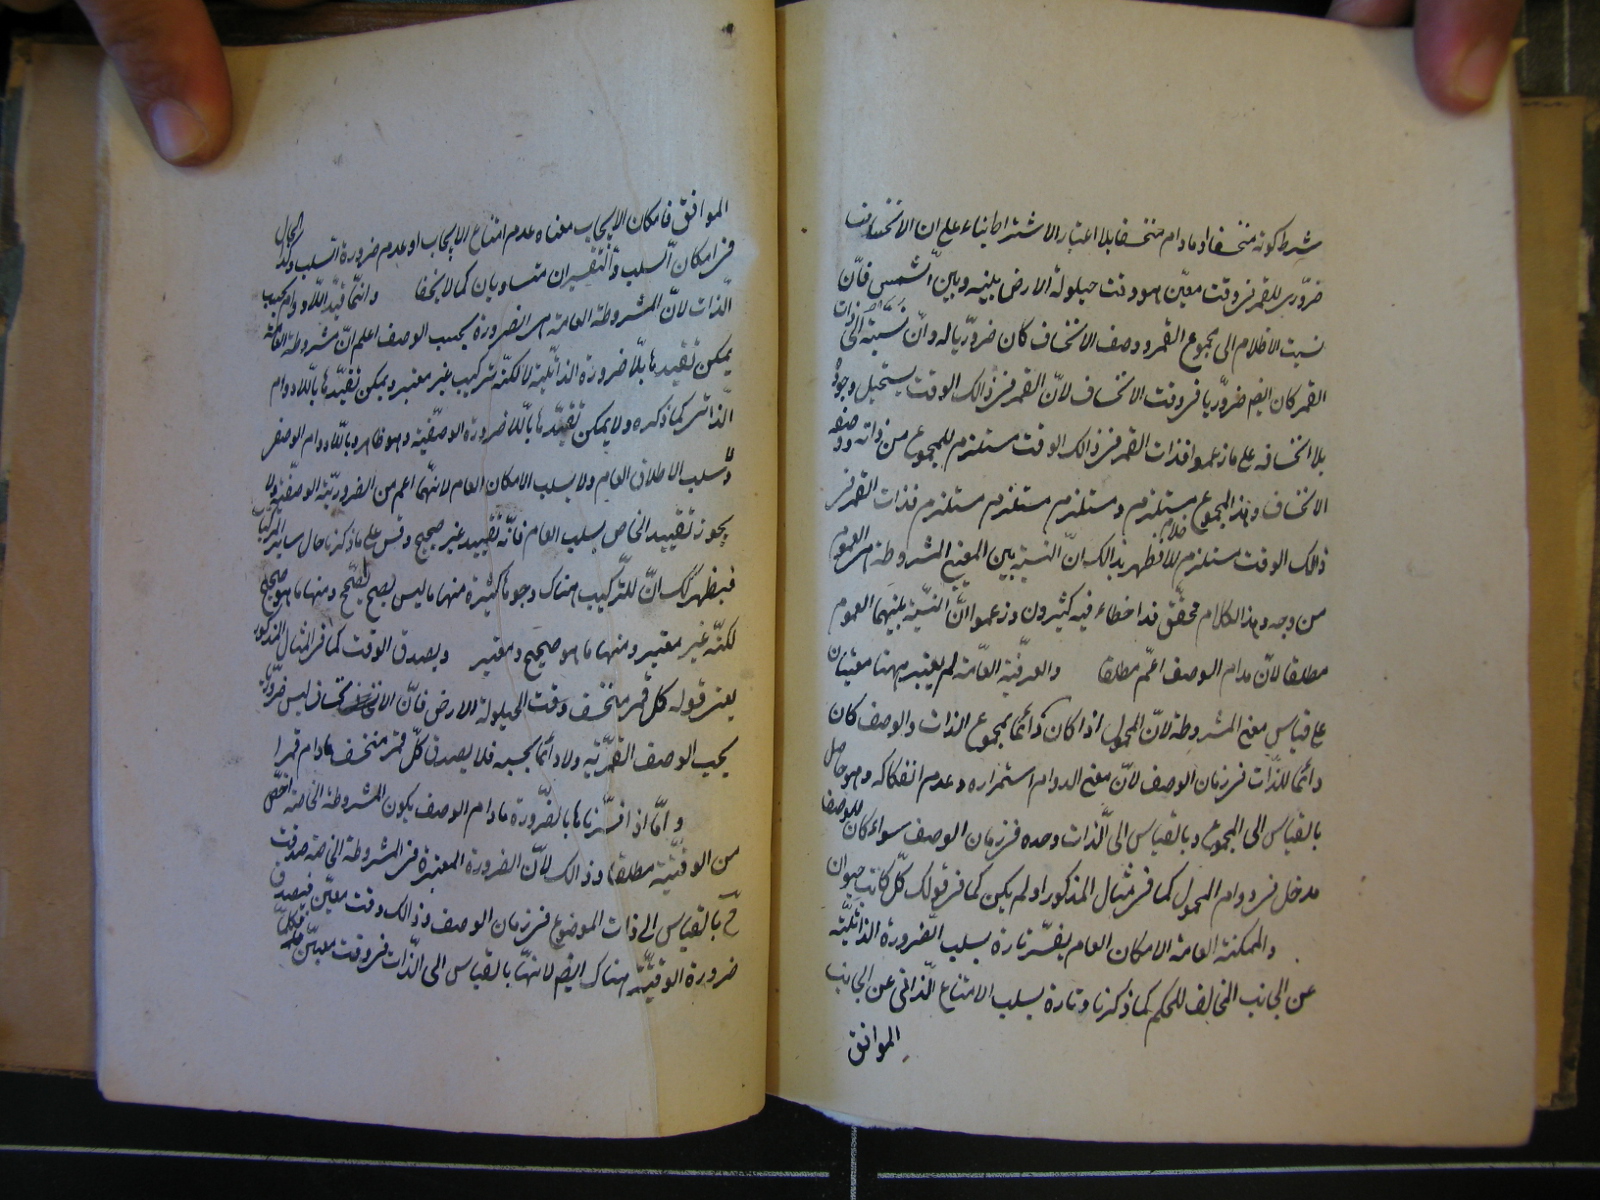 شرط كونه منخسفا او مادام منخسفا بلا اعتبار الاشتراط بناء على ان الانخساف
ضرورى للقمر فى وقت معين هو وقت حيلولة الارض بينه وبين الشمس فان
نسبت الاظلام الى مجموع القمر ووصف الانخساف كان ضروريا له وان نسبته الى ذات
القمر كان ايضا ضروريا فى وقت الانخساف لان القمر فى ذلك الوقت يستحيل وجوده
بلا انخسافه على ما زعموا فذات القمر فى ذلك الوقت مستلزم للمجموع من ذاته ووصفه
الانخساف وهذا المجموع مستلزم ومستلزم مستلزم مستلزم فذات القمر فى
ذلك الوقت مستلزم للاظلام فظهر بذلك ان النسبة بين المعنى المشروطة هى العموم
من وجه وهذا الكلام محقق قد اخطاء فيه كثيرون وزعموا ان النسبة بينهما العموم
مطلقا لان مادام الوصف اعم مطلقا والعرفية العامة لم يعتبر ههنا معنيان
على قياس معنى المشروطة لان المحمول اذا كان دائما بمجموع الذات والوصف كان
دائما للذات فى زمان الوصف لان معنى الدوام استمراره وعدم انفكاكه وهو حاصل
بالقياس الى المجموع وبالقياس الى الذات وحده فى زمان الوصف سواء كان للوصف
مدخل فى دوام المحمول كما فى مثال المذكور او لم يكن كما فى قولك كل كاتب حيوان
والممكنة العامة الامكان العام يفسر تارة بسلب الضرورة الذاتية
عن الجانب المخالف للحكم كما ذكرنا وتارة بسلب الامتناع الذاتى عن الجانب
الموافق
الموافق فامكان الايجاب معناه عدم امتناع الايجاب او عدم ضرورة السلب وكذا الحال
فى امكان السلب والتفسيران متساويان كما لا يخفا وانما قيد اللادوام بحسب
الذات لان المشروطة العامة هى الضرورة بحسب الوصف اعلم ان مشروطة العامة
يمكن تقييدها بلا ضرورة الذاتية لا لكنه تركيب غير معتبر ويمكن تقيدها باللادوام
الذاتى كما ذكره ولا يمكن تقيدها باللا ضرورة الوصفية وهو ظاهر وباللادوام الوصفى
ولا سلب الاطلاق العام ولا بسلب الامكان العام لانهما اعم من الضرورية الوصفية ولا
يجوز تقييد الخاص بسلب العام فانه تقييد غير صحيح وقس على ما ذكرنا حال سائر المركبات
فيظهر لك ان للتركيب هناك وجوها كثيرة منها ما ليس بصحيح ومنها ما هو صحيح
لكنه غير معتبر ومنها ما هو صحيح ومعتبر ويصدق الوقت كما فى المثال المذكور
يعنى قوله كل قمر منخسف وقت الحيلولة الارض فان الانخساف ليس ضروريا
بحسب الوصف القمرية ولا دائما بحسبه فلا يصدق كل قمر منخسف مادام قمرا
واما اذا فسرناها بالضرورة مادام الوصف يكون المشروطة الخاصة اخص
من الوقتية مطلقا وذلك لان الضرورة المعتبرة فى المشروطة الخاصة صدقت
ح بالقياس الى ذات الموضوع فى زمان الوصف وذلك وقت معين فيصدق
ضرورة الوقتية هناك ايضا لانها بالقياس الى الذات فى وقت معين فكل